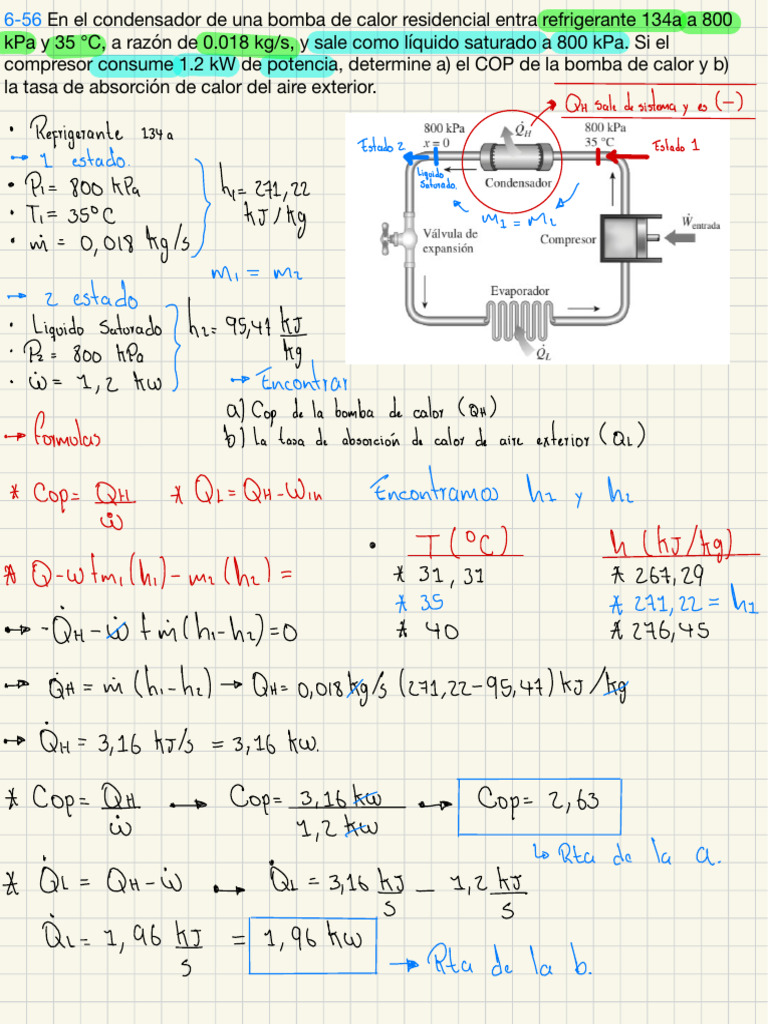 6-56 En el condensador de una bomba de calor residencial entra refrigerante 134a a 800
kPa y 35 °C, a razón de 0.018 kg/s, y sale como líquido saturado a 800 kPa. Si el
compresor consume 1.2 kW de potencia, determine a) el COP de la bomba de calor y b)
la tasa de absorción de calor del aire exterior.
QH sale de sistema y es (-)
• Refrigerante 134a
→ 1 estado.
• P1 = 800 kPa
• T1 = 35°C
• ṁ = 0,018 kg/s
h1 = 271,22
kJ/kg
m1 = m2
→ 2 estado
• Liquido Saturado
• P2 = 800 kPa
• ẇ = 1,2 kW
h2 = 95,47 kJ/kg
800 kPa
x = 0
Q̇H
800 kPa
35 °C
Estado 2
Estado 1
Liquido
Saturado.
Condensador
m1 = m2
Válvula de
expansión
Compresor
Ẇentrada
Evaporador
Q̇L
→ Encontrar
a) Cop de la bomba de calor (QH)
b) La tasa de absorción de calor de aire exterior (QL)
→ formulas
* Cop = QH/ẇ * QL = QH - Win
Encontramos h2 y h2
• T(°C) h (kJ/kg)
* 31,31 * 267,29
* 35 * 271,22 = h1
* 40 * 276,45
* Q-w+m1(h1)-m2(h2) =
→ -Q̇H - ẇ + ṁ(h1-h2) = 0
→ Q̇H = ṁ (h1-h2) → QH = 0,018 kg/s (271,22-95,47) kJ/kg
→ Q̇H = 3,16 kJ/s = 3,16 kW.
* Cop = QH/ẇ → Cop = 3,16 kW/1,2 kW → Cop = 2,63
↳ Rta de la a.
* Q̇L = QH - ẇ → Q̇L = 3,16 kJ/s - 1,2 kJ/s
Q̇L = 1,96 kJ/s = 1,96 kW
→ Rta de la b.